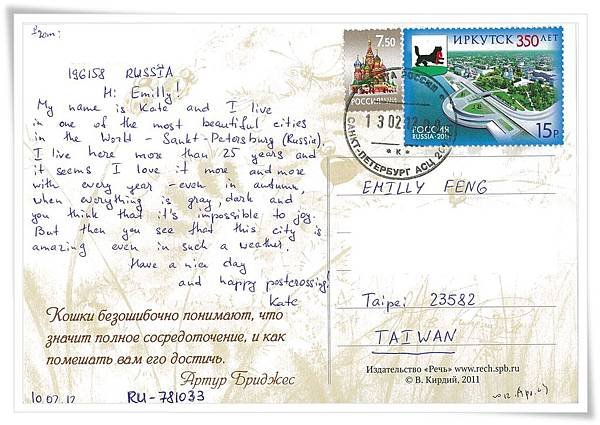 From:
196158 RUSSIA
Hi Emilly!
My name is Kate and I live
in one of the most beautiful cities
in the World - Sankt-Petersburg (Russia).
I live here more than 25 years and
it seems I love it more and more
with every year - even in autumn,
when everything is gray, dark and
you think that it's impossible to joy.
But then you see that this city is
amazing even in such a weather.
Have a nice day
and happy postcrossing!
Kate
Кошки безошибочно понимают, что
значит полное сосредоточение, и как
помешать вам его достичь.
Артур Бриджес
10.02.12
RU-781033
7.50
РОССИЯ
ИРКУТСК 350 ЛЕТ
РОССИЯ
RUSSIA·2011
15р
САНКТ-ПЕТЕРБУРГ АСЦ
EMILLY FENG
Taipei 23582
TAIWAN
Издательство «Речь» www.rech.spb.ru
© В. Кирдий, 2011